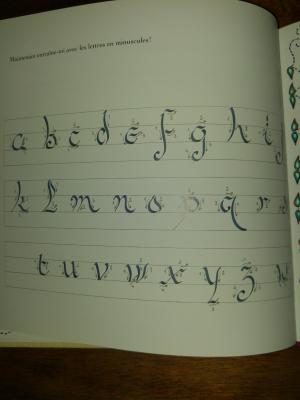 Maintenant entraîne-toi avec les lettres en minuscules!
a b c d e f g h i
k l m n o p q r
t u v w x y z